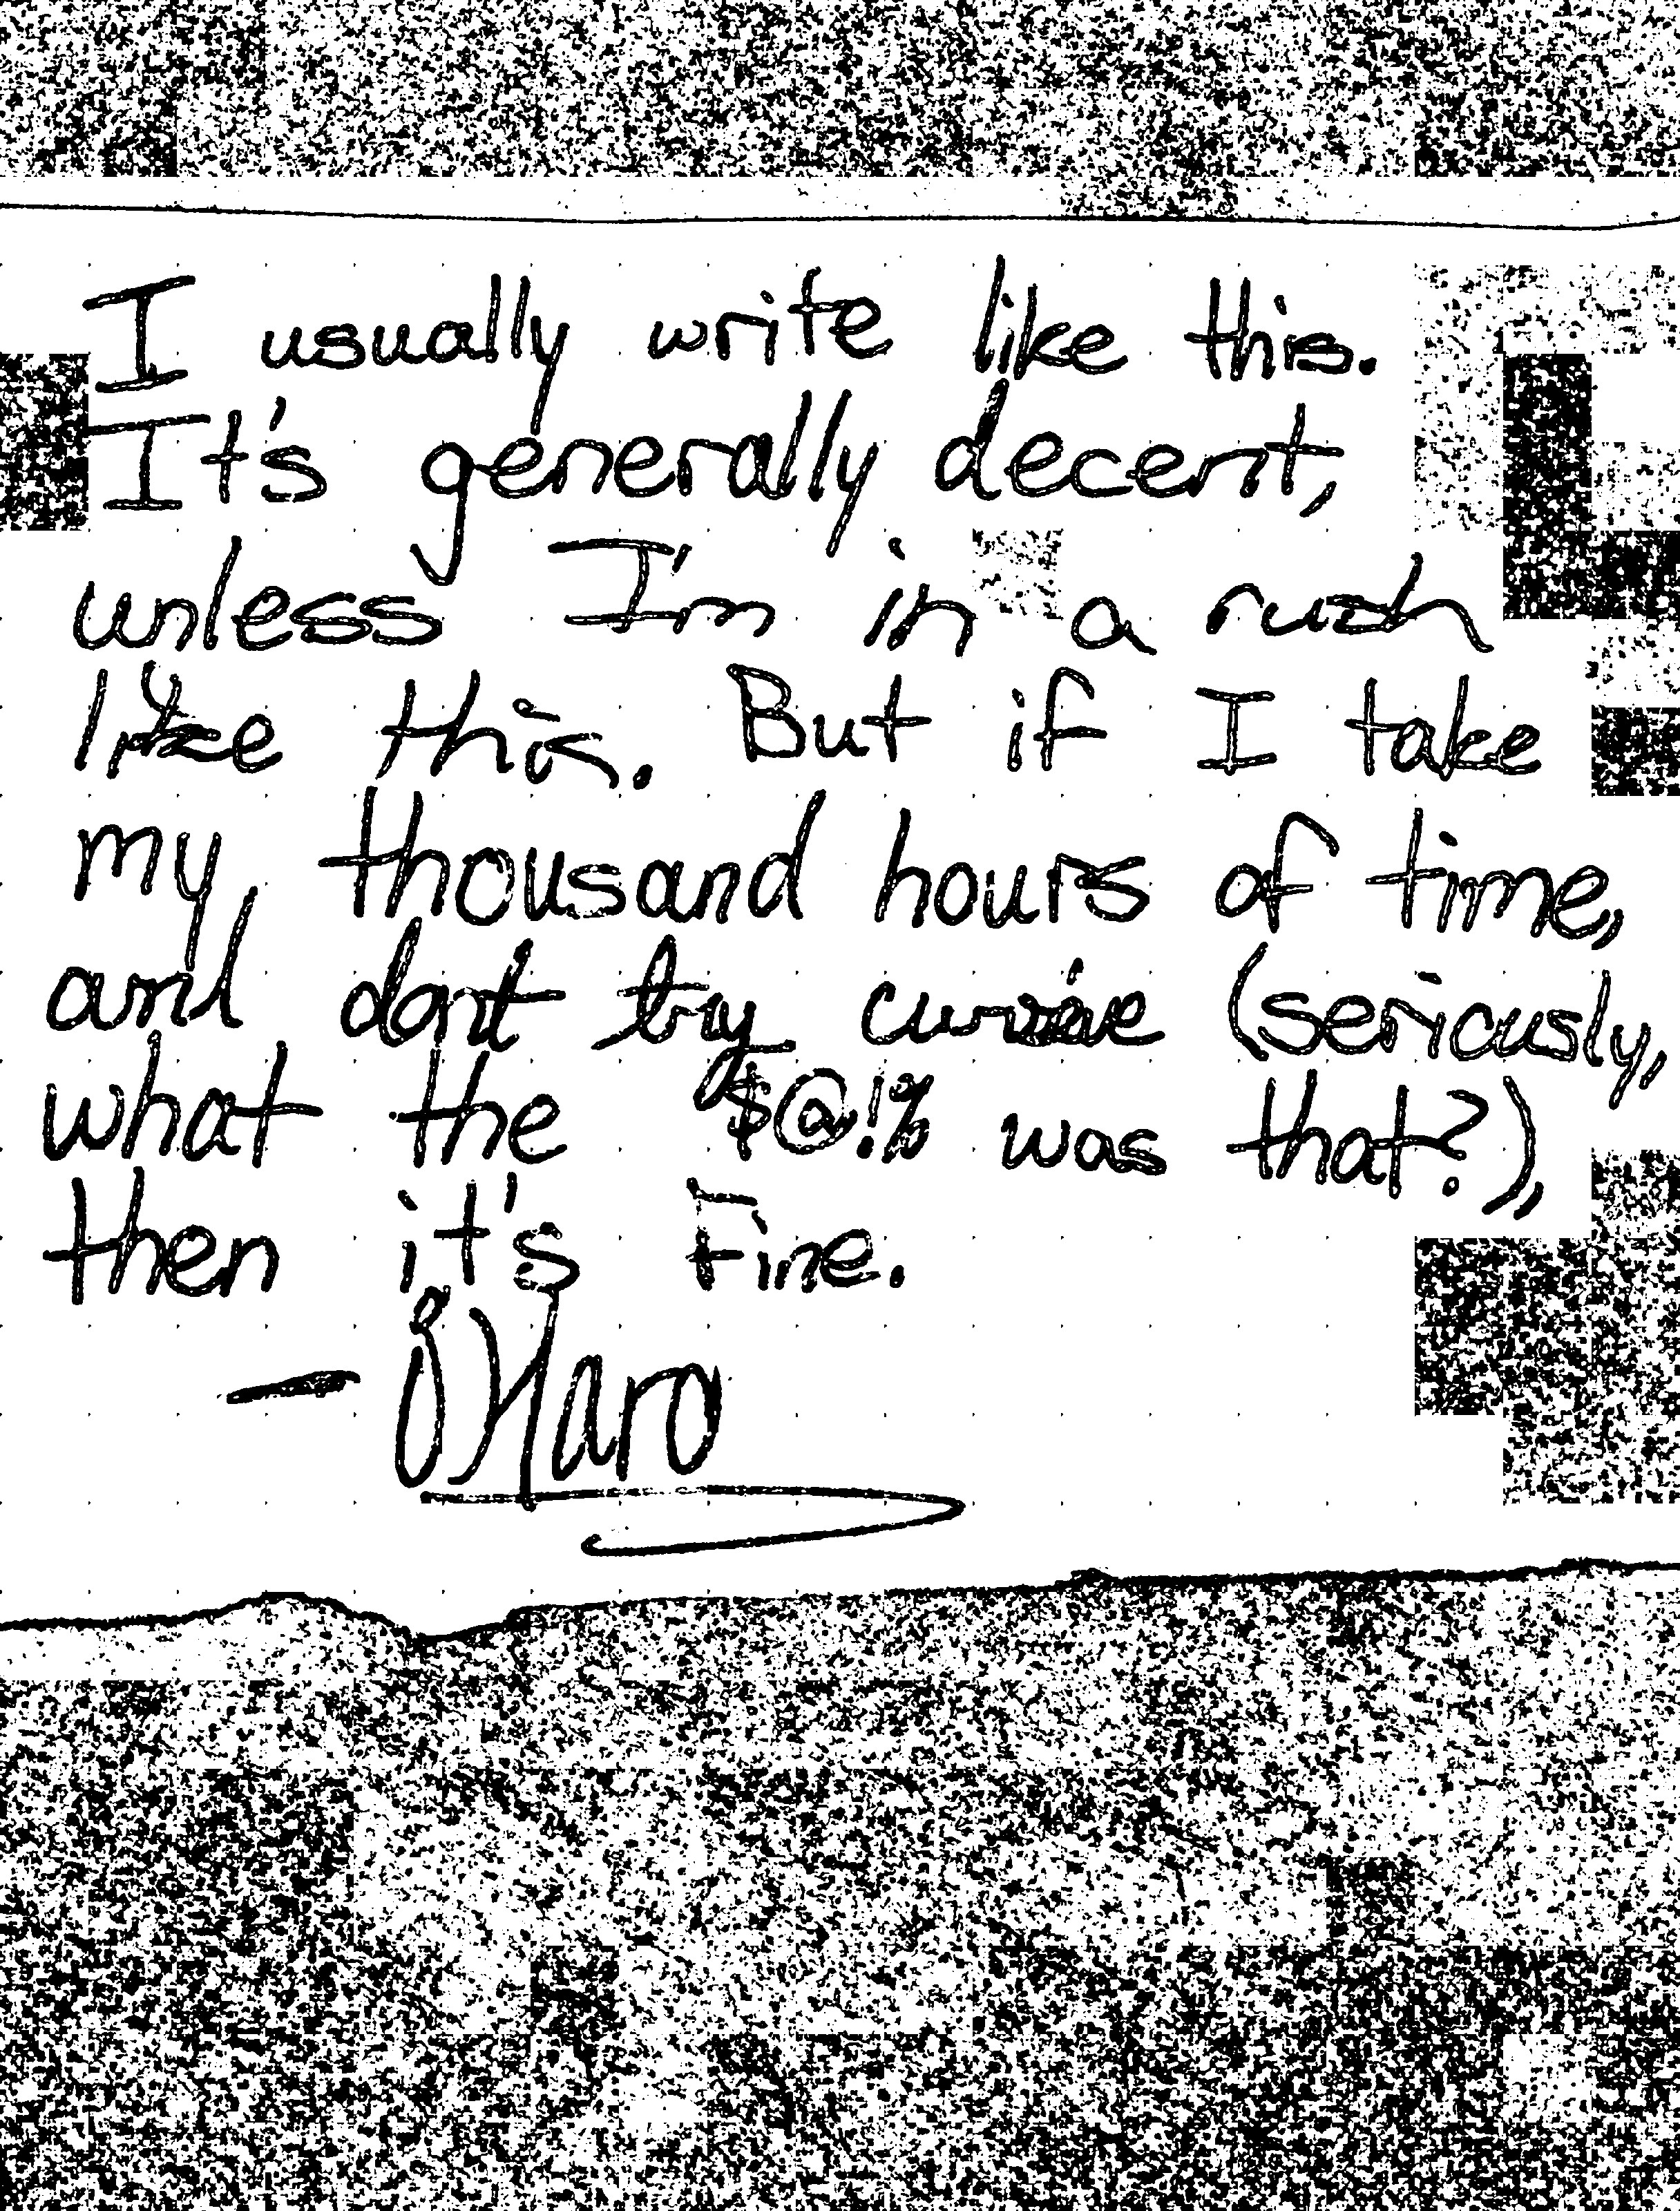 I usually write like this.
It's generally decent,
unless I'm in a rush
like this. But if I take
my thousand hours of time,
and don't try cursive (seriously,
what the $@!% was that?),
then it's Fine.
- O'Haro